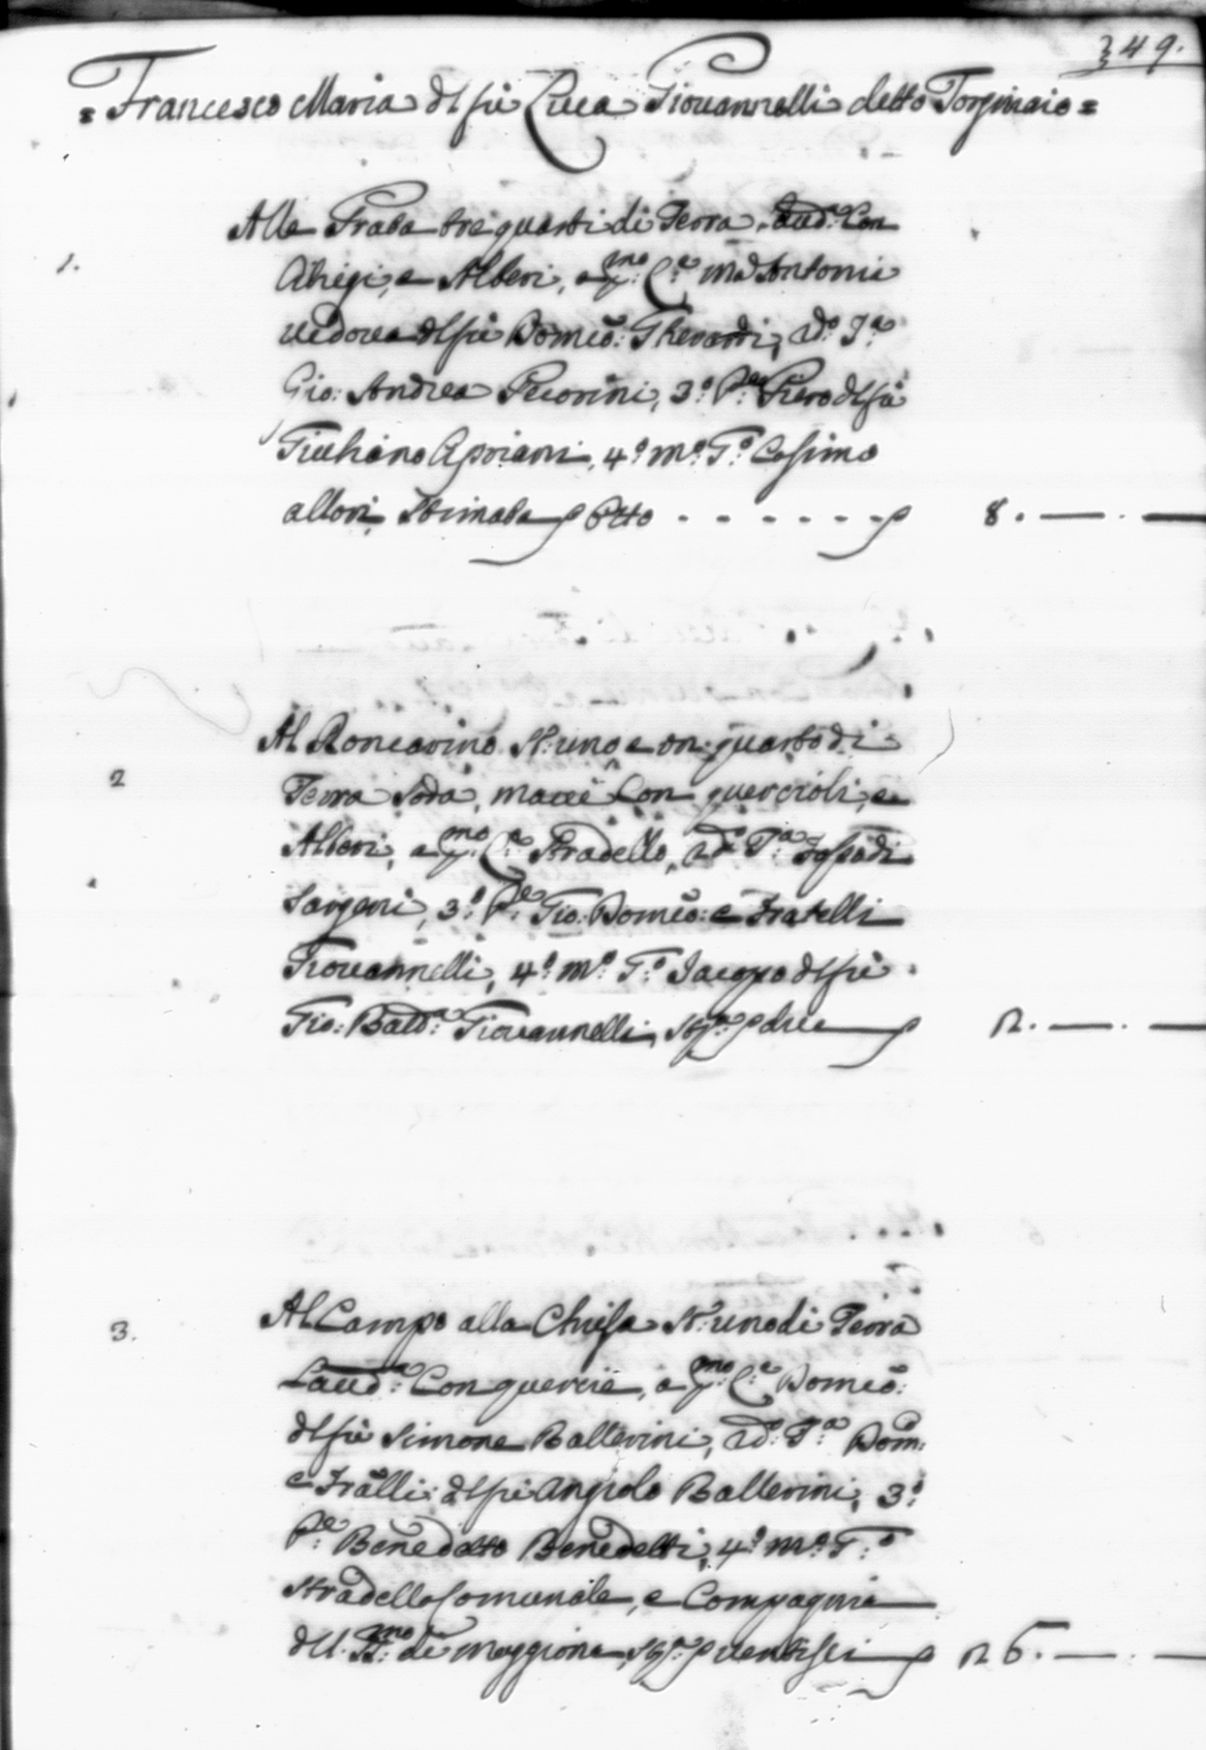 349.
= Francesco Maria dl fù Luca Giovannelli detto Torginaio =
Alle Prata tre quarti di Terra, Laud:ª Con
1.
Ahigi, e Alberi, a p:mo C:ª Mª Antonia
vedova dl fù Domcõ: Gherardi, 2dº: Tª
Gio: Andrea Pecorini, 3:º P:e Piero dl fù
Giuliano Apriani, 4:º m:º T:º Cosimo
allori, Stimata p Otto - - - - - - - p 8. — . —
Al Roncarino St: uno e on: quarto di
2
Terra Soda, macc:ª Con quercioli, e
Alberi, a p:mo C:ª Stradello, 2dº: T:ª
Sargeni, 3:º P:e Gio: Domcõ: e Fratelli
Giovannelli, 4:º m:º T:º Jacopo dl fù
Gio: Batt:ª Giovannelli, St:ª p due p 2. — . —
Al Campo alla Chiesa St: uno di Terra
3.
Laud:ª Con quercie, a p:mo C:ª Domcõ:
dl fù Simone Ballerini, 2dº: T:ª Dom:co
e Frãlli: dl fù Angiolo Ballerini, 3:º
P:e Benedetto Benedetti, 4:º m:º T:º
Stradello Comunale, e Compagnia
dll. SS:mo di Moggiona, St:ª p ventisei p 26. — . —